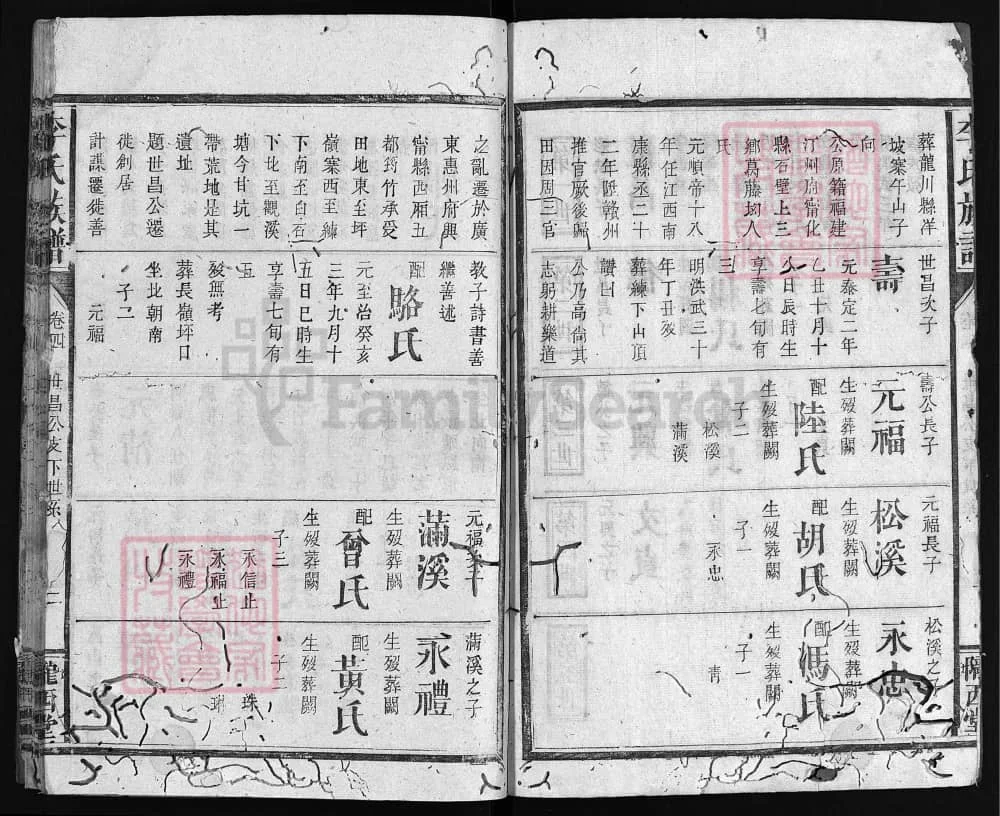 葬龍川縣洋
坡寨午山子
向
公原籍福建
汀州府寧化
縣石壁上三
鄉葛藤坳人
氏
元順帝十八
年任江西南
康縣丞二十
二年陞贛州
推官厥後歸
田因周三官
世昌次子
壽
元泰定二年
乙丑十月十
八日辰時生
享壽七旬有
三
明洪武三十
年丁丑歿
葬練下山頂
讚曰
公乃高尚其
志躬耕樂道
壽公長子
元福
生歿葬闕
配
陸氏
生歿葬闕
子二
松溪
滿溪
元福長子
松溪
生歿葬闕
配
胡氏
生歿葬闕
子一
永忠
松溪之子
永忠
生歿葬闕
配
馮氏
生歿葬闕
子一
青
隴西堂
之亂遷於廣
東惠州府興
甯縣西厢五
都筠竹承受
田地東至坪
嶺寨西至練
下南至白石
下北至觀溪
塘今甘坑一
帶荒地是其
遺址
題世昌公遷
徙創居
計謀遷徙善
教子詩書善
繼善述
配
駱氏
元至治癸亥
三年九月十
五日巳時生
享壽七旬有
五
歿無考
葬長嶺坪口
坐北朝南
子二
元福
元福次子
滿溪
生歿葬闕
配
曾氏
生歿葬闕
子三
永信止
永福止
永禮
滿溪之子
永禮
生歿葬闕
配
黃氏
生歿葬闕
子二
珠
李氏族譜
卷四
世昌公支下世系
FamilySearch